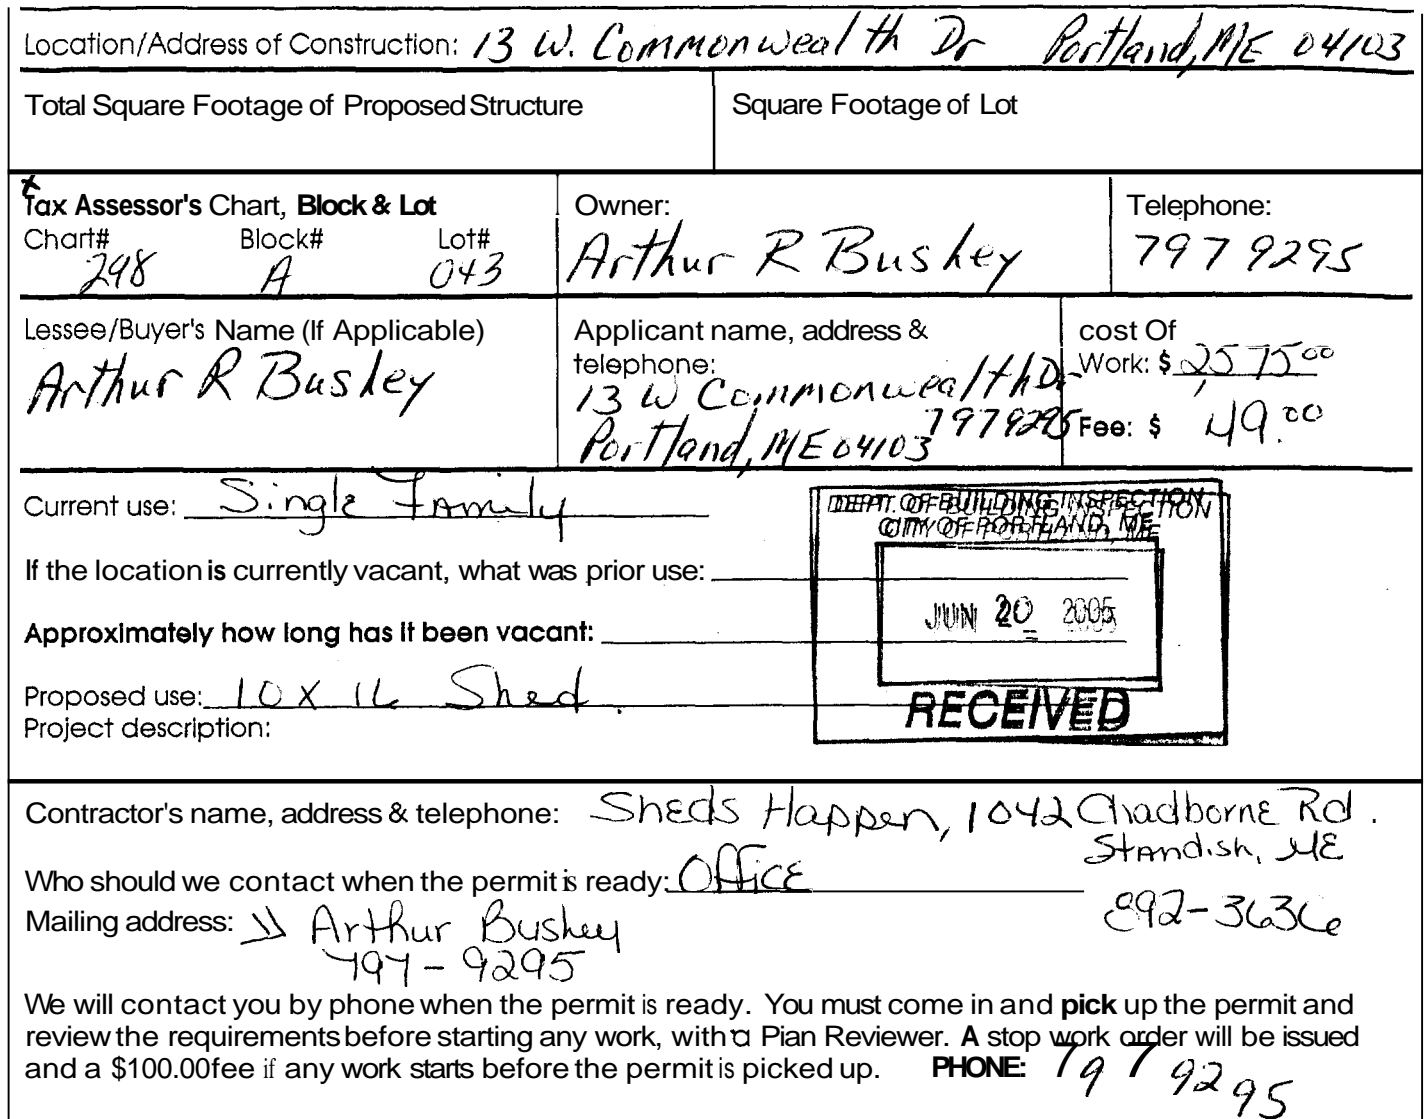 Location/Address of Construction: 13 W. Commonwealth Dr Portland, ME 04103
Total Square Footage of Proposed Structure Square Footage of Lot
Tax Assessor's Chart, Block & Lot
Chart# Block# Lot#
298 A 043
Owner:
Arthur R Bushey
Telephone:
797 9295
Lessee/Buyer's Name (If Applicable)
Arthur R Bushey
Applicant name, address &
telephone:
13 W Commonwealth Dr
Portland, ME 04103 7979295
cost Of
Work: $ 2,575.00
Fee: $ 49.00
Current use: Single Family
If the location is currently vacant, what was prior use:
Approximately how long has it been vacant:
Proposed use: 10 X 16 Shed.
Project description:
DEPT. OF BUILDING INSPECTION
CITY OF PORTLAND, ME
JUN 20 2005
RECEIVED
Contractor's name, address & telephone: Sheds Happen, 1042 Chadborne Rd.
Standish, ME
892-3636
Who should we contact when the permit is ready: Office
Mailing address: Arthur Bushey
797-9295
We will contact you by phone when the permit is ready. You must come in and pick up the permit and
review the requirements before starting any work, with a Pian Reviewer. A stop work order will be issued
and a $100.00fee if any work starts before the permit is picked up. PHONE: 797 9295